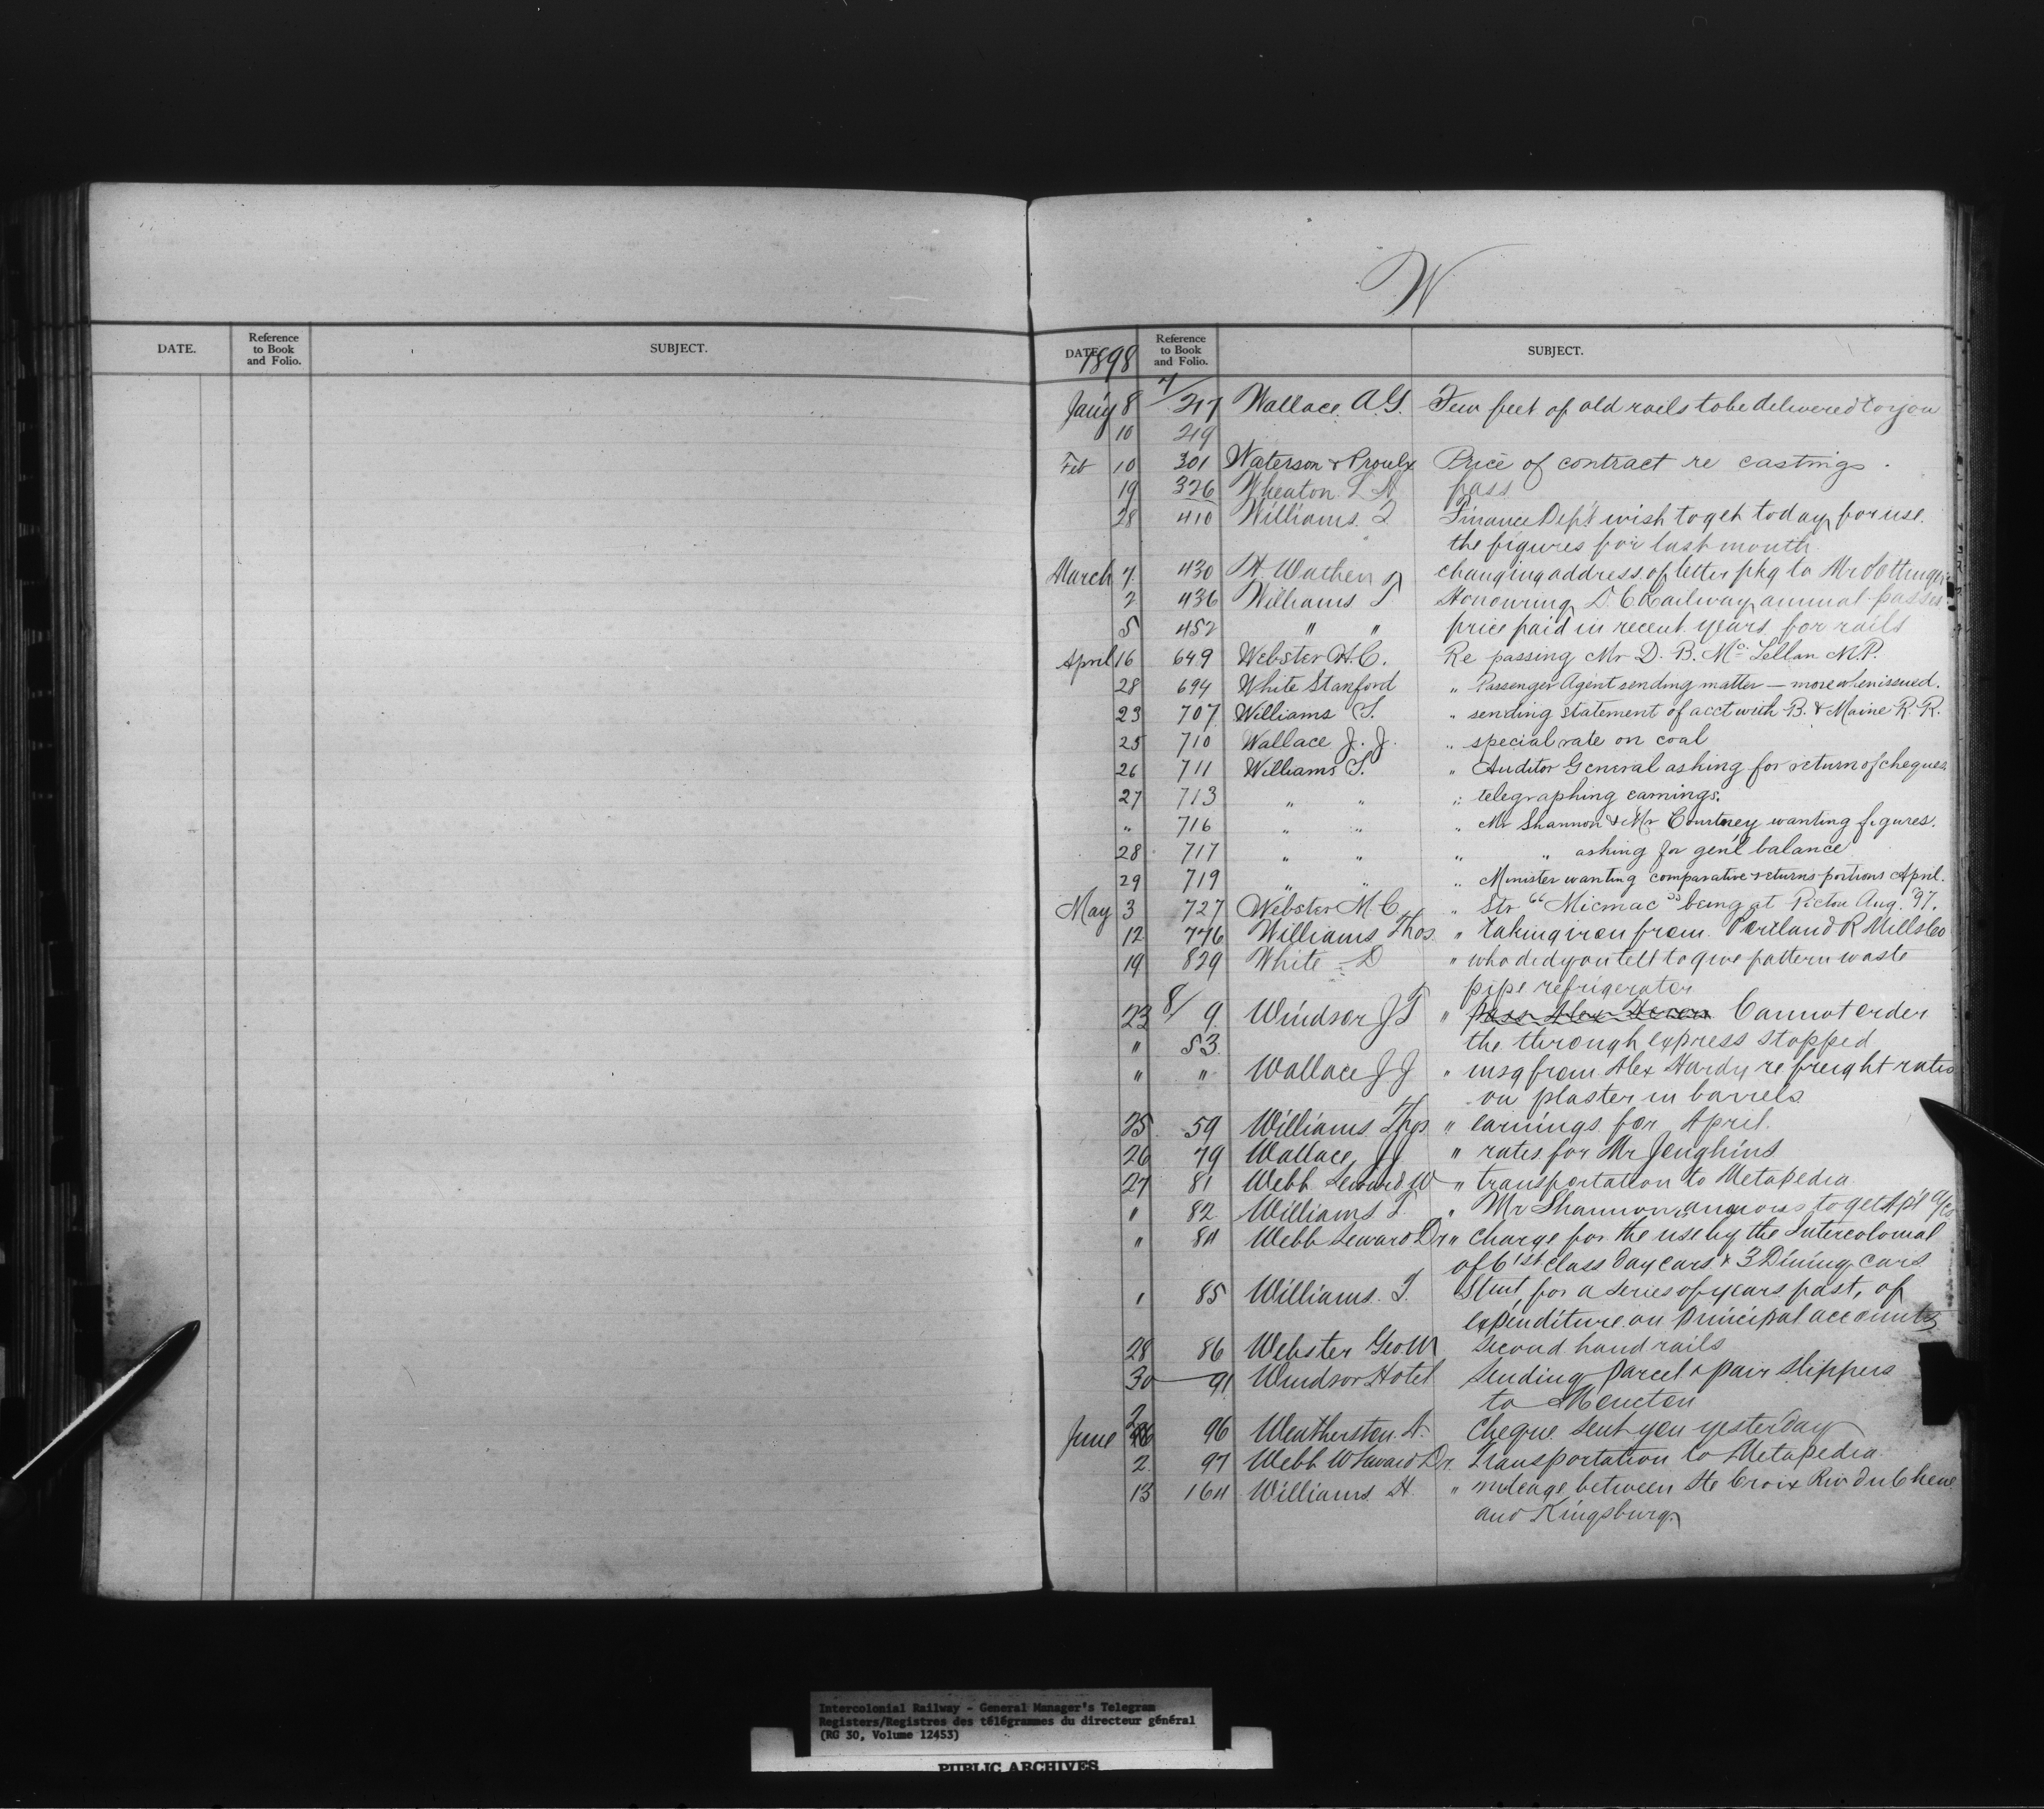 W
DATE. Reference to Book and Folio. SUBJECT.
DATE 1898 Reference to Book and Folio. SUBJECT.
Jan'y 8 7/217 Wallace A.G. Few feet of old rails to be delivered to you
10 219
Feb 10 301 Waterson & Proulx Price of contract re castings.
19 326 Wheaton L pass
28 410 Williams T Finance Dep't wish to get today for use
the figures for last month
March 7 430 Wathen changing address of letter pkg to Mr Pottinger
2 436 Williams T Honouring D. C. Railway annual passes
5 452 " " price paid in recent years for rails
April 16 649 Webster H.C. Re passing Mr D. B. Mc Lellan M.P.
28 694 White Stanford " Passenger Agent sending matter — more when issued.
23 707 Williams T. " sending statement of acct with B. & Maine R. R.
25 710 Wallace J. J. " special rate on coal
26 711 Williams T. " Auditor General asking for return of cheques
27 713 " " " telegraphing earnings.
" 716 " " " Mr Shannon & Mr Courtney wanting figures.
28 717 " " " " asking for gen'l balance
29 719 " " " Minister wanting comparative returns portions April.
May 3 727 Webster M C. " Str "Micmac" being at Pictou Aug. '97.
12 776 Williams Thos. " taking iron from Portland R Mills Co
19 829 White D " who did you tell to give pattern waste
pipe refrigerator
23 8/9 Windsor J T " Cannot order
" 53 the through express stopped
" " Wallace J J " msg from Alex Hardy re freight rates
on plaster in barrels
25 59 Williams Thos " earnings for April.
26 79 Wallace JJ " rates for Mr Jenghins
27 81 Webb Seward W " transportation to Metapedia
" 82 Williams T. " Mr Shannon anxious to get Ap'l a/cs
" 84 Webb Seward Dr " Charge for the use by the Intercolonial
of 6 1st class day cars & 3 Dining cars
" 85 Williams. T. Stmt for a series of years past, of
expenditure on principal accounts
28 86 Webster Geo W Second hand rails
30 91 Windsor Hotel Sending parcel & pair slippers
to Moncton
June 2 96 Weatherston A. Cheque sent you yesterday
2 97 Webb W Seward Dr. Transportation to Metapedia
13 164 Williams H. " mileage between Ste Croix Riv du Chene
and Kingsburg
Intercolonial Railway - General Manager's Telegram
Registers/Registres des télégrammes du directeur général
(RG 30, Volume 12453)
PUBLIC ARCHIVES